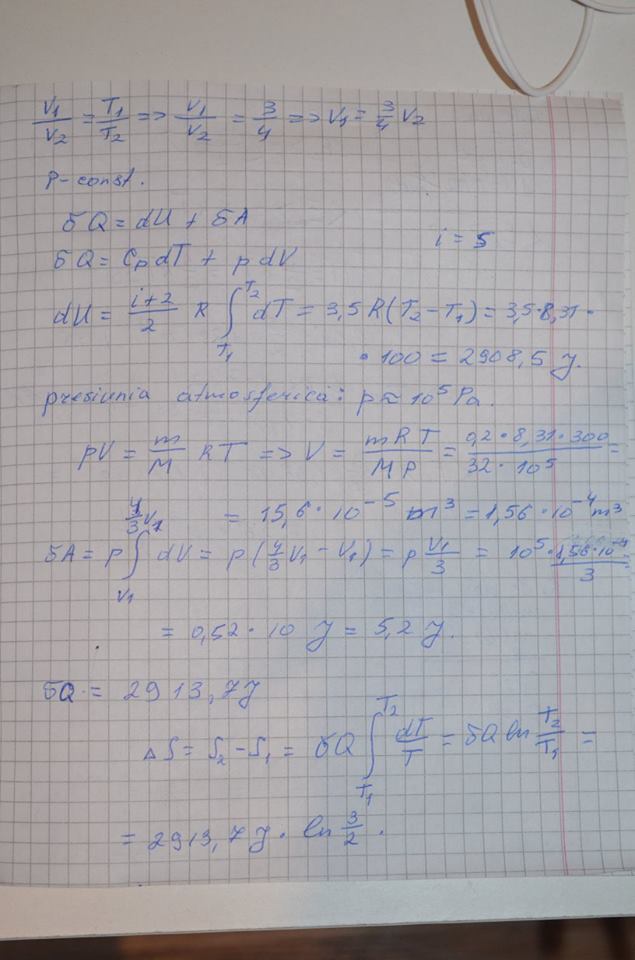 V₁/V₂ = T₁/T₂ => V₁/V₂ = 3/4 => V₁ = 3/4 V₂
p-const.
δQ = dU + δA
i = 5
δQ = Cp dT + p dV
dU = (i+2)/2 R ∫_{T₁}^{T₂} dT = 3,5 R (T₂ - T₁) = 3,5 · 8,31 ·
· 100 = 2908,5 J.
presiunia atmosferică: p ≈ 10⁵ Pa.
pV = m/M RT => V = mRT/Mp = (0,2 · 8,31 · 300)/(32 · 10⁵) =
= 15,6 · 10⁻⁵ m³ = 1,56 · 10⁻⁴ m³
δA = p ∫_{V₁}^{4/3 V₁} dV = p (4/3 V₁ - V₁) = p V₁/3 = 10⁵ · (1,56 · 10⁻⁴)/3
= 0,52 · 10 J = 5,2 J.
δQ = 2913,7 J
ΔS = S₂ - S₁ = δQ ∫_{T₁}^{T₂} dT/T = δQ ln T₂/T₁ =
= 2913,7 J · ln 3/2 .